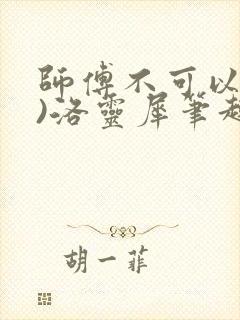 師傅不可以
)洛靈犀筆趣
胡一菲